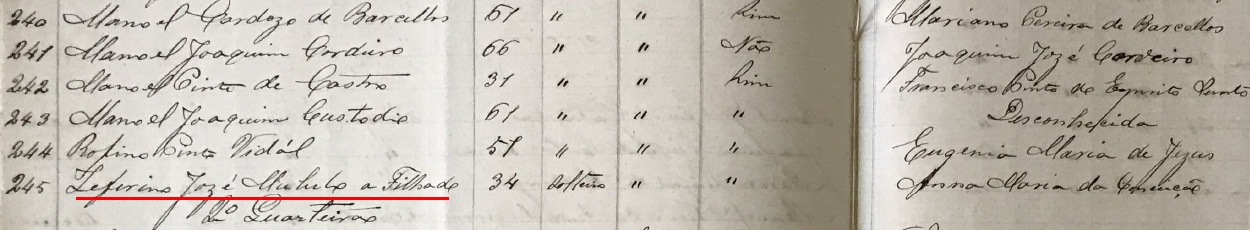 240 Manoel Cardozo de Barcellos 61 " " Sim Mariano Pereira de Barcellos
241 Manoel Joaquim Cordeiro 66 " " Não Joaquim Jozé Cordeiro
242 Manoel Pinto de Castro 31 " " Sim Francisco Pinto do Espirito Santo
243 Manoel Joaquim Custodio 61 " " " Desconhecida
244 Rofino Pinto Vidál 51 " " " Eugenia Maria de Jezus
245 Zeferino Jozé a Filhado 34 Solteiro " " Anna Maria da Conceição
2º Quarteirão